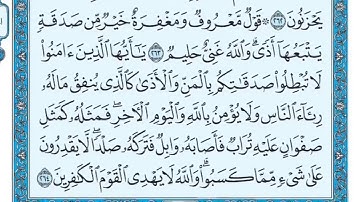 يَحۡزَنُونَ ٢٦٢ ۞ قَوۡلٞ مَّعۡرُوفٞ وَمَغۡفِرَةٌ خَيۡرٞ مِّن صَدَقَةٖ
يَتۡبَعُهَآ أَذٗىۗ وَٱللَّهُ غَنِيٌّ حَلِيمٞ ٢٦٣ يَٰٓأَيُّهَا ٱلَّذِينَ ءَامَنُواْ
لَا تُبۡطِلُواْ صَدَقَٰتِكُم بِٱلۡمَنِّ وَٱلۡأَذَىٰ كَٱلَّذِي يُنفِقُ مَالَهُۥ
رِئَآءَ ٱلنَّاسِ وَلَا يُؤۡمِنُ بِٱللَّهِ وَٱلۡيَوۡمِ ٱلۡأٓخِرِۖ فَمَثَلُهُۥ كَمَثَلِ
صَفۡوَانٍ عَلَيۡهِ تُرَابٞ فَأَصَابَهُۥ وَابِلٞ فَتَرَكَهُۥ صَلۡدٗاۖ لَّا يَقۡدِرُونَ
عَلَىٰ شَيۡءٖ مِّمَّا كَسَبُواْۗ وَٱللَّهُ لَا يَهۡدِي ٱلۡقَوۡمَ ٱلۡكَٰفِرِينَ ٢٦٤